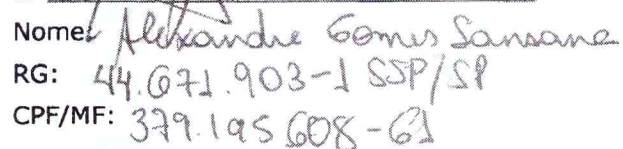 Nome: Alexandre Gomes Sansane
RG: 44.671.903-1 SSP/SP
CPF/MF: 379.195.608-61